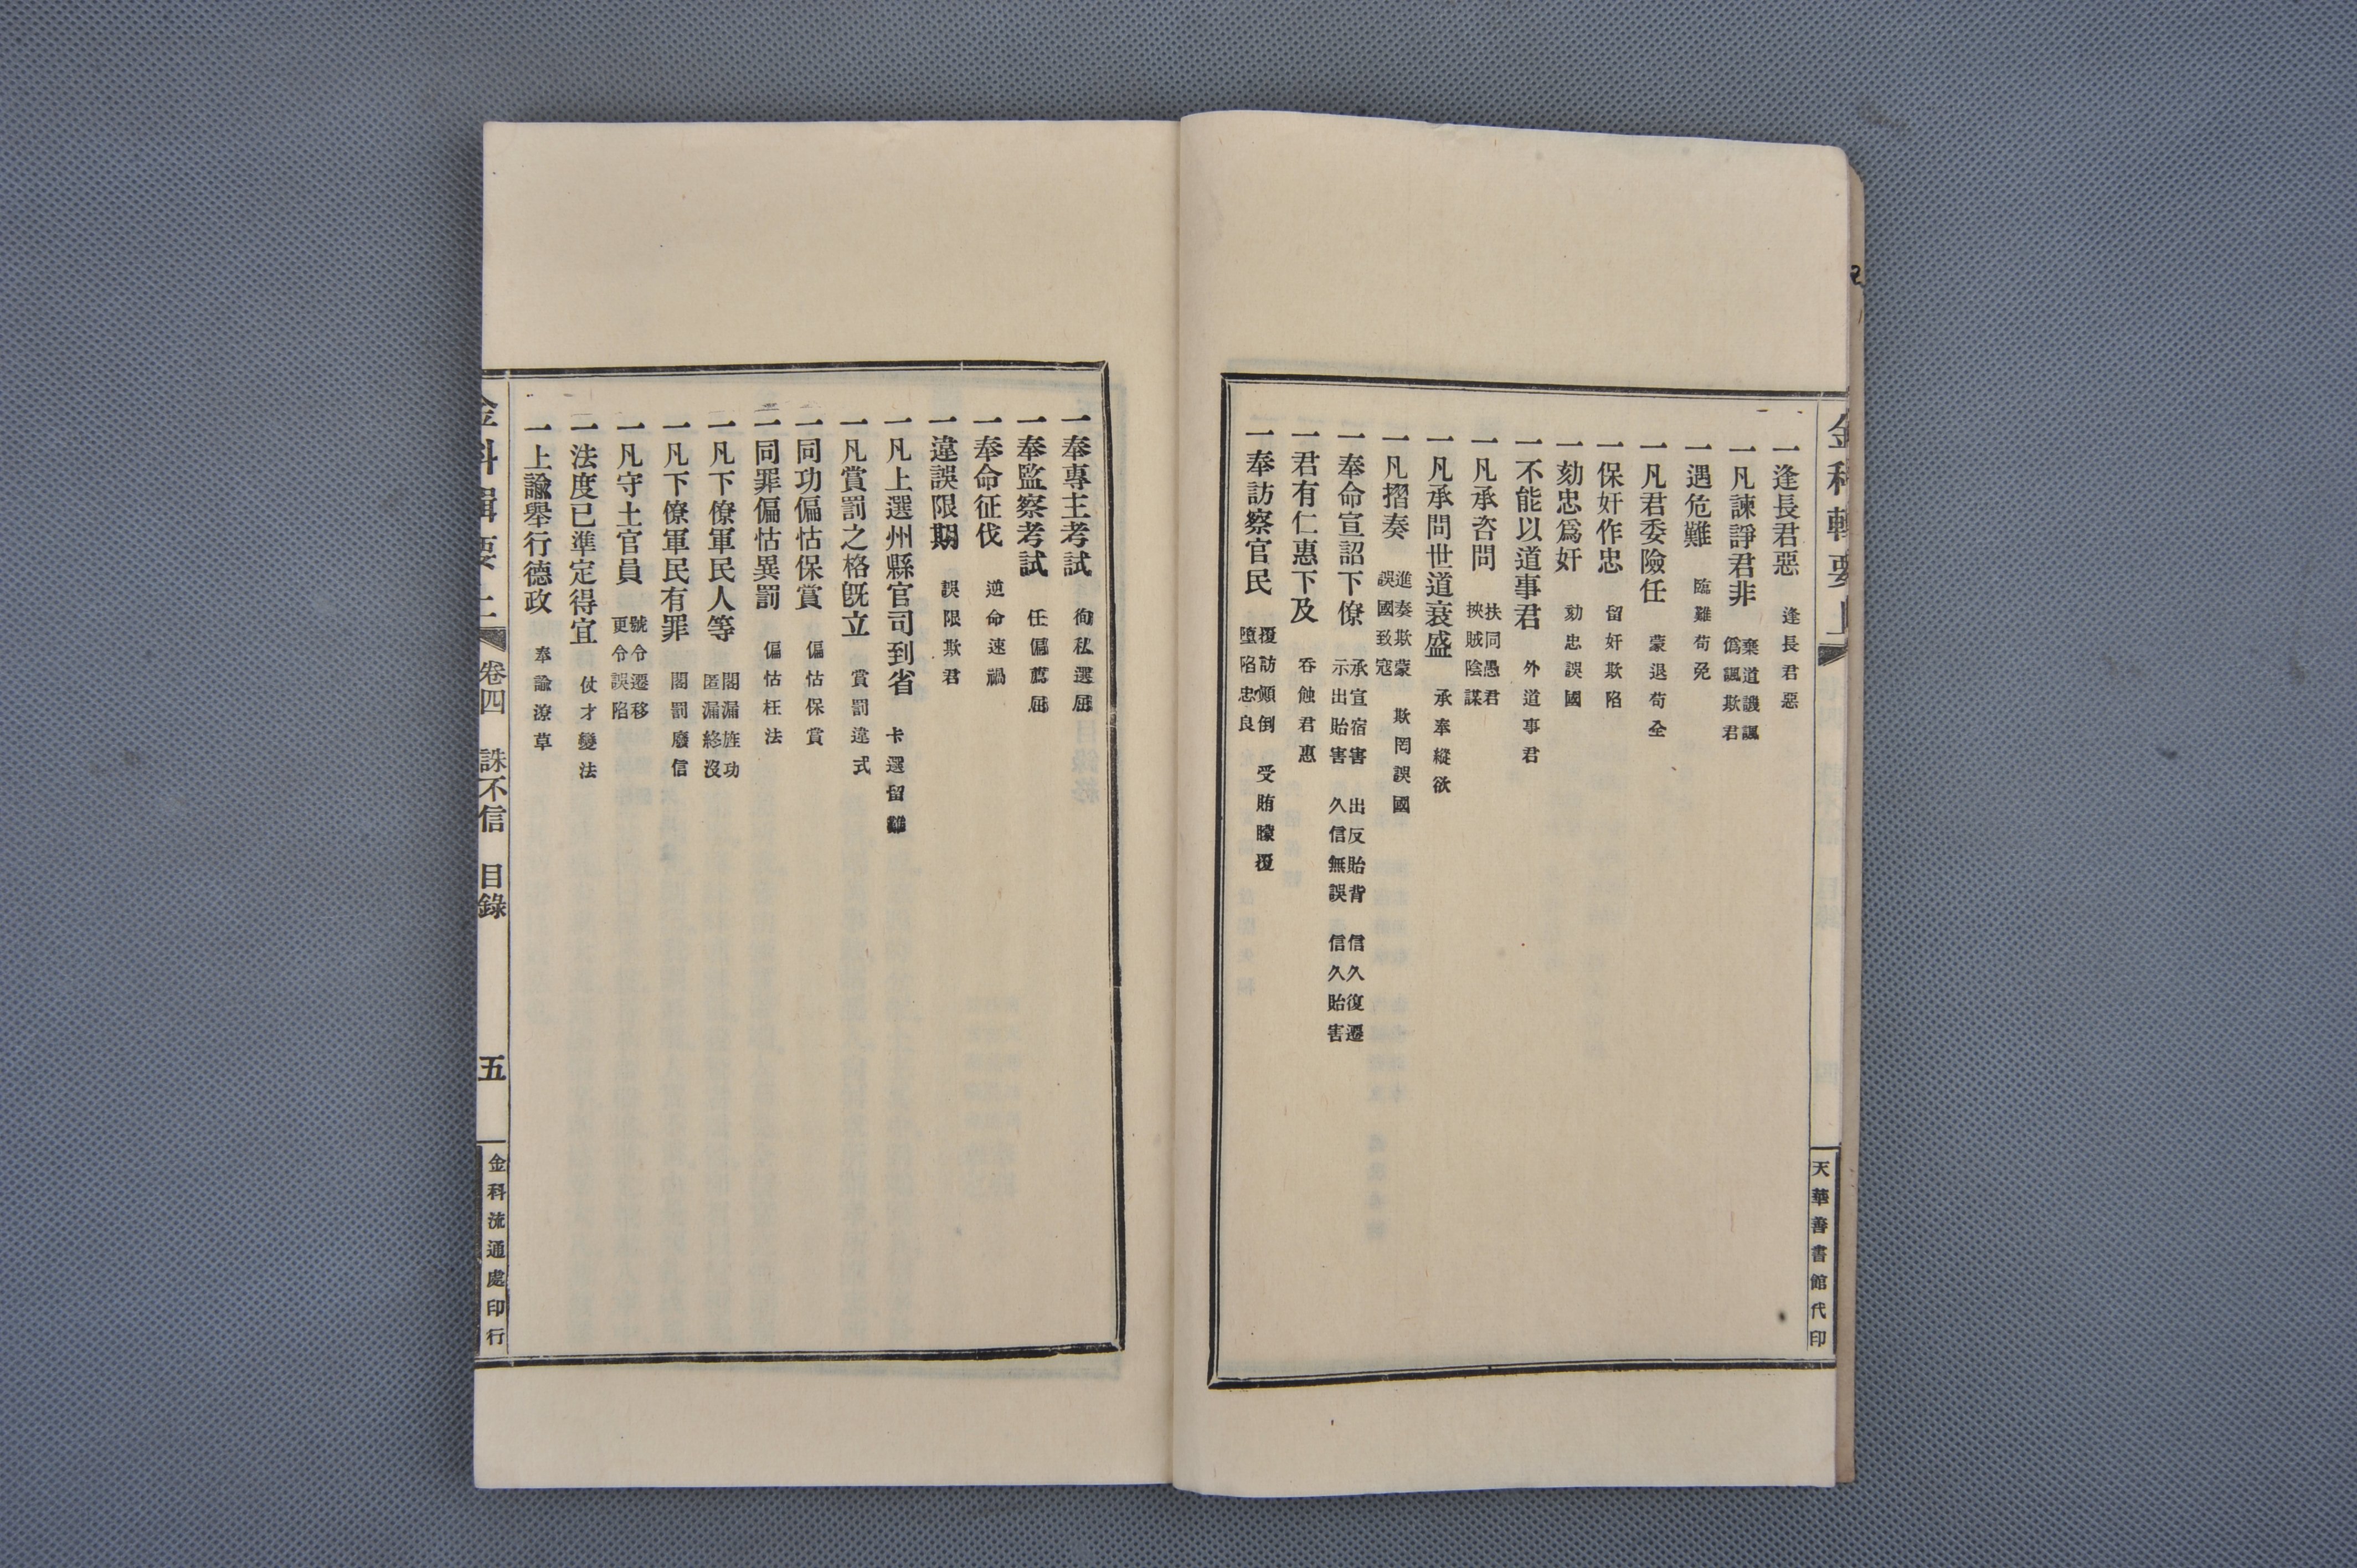 一逢長君惡 逢長君惡
一凡諫諍君非 棄道譏諷 僞諷欺君
一遇危難 臨難苟免
一凡君委險任 蒙退苟全
一保奸作忠 留奸欺陷
一劾忠爲奸 劾忠誤國
一不能以道事君 外道事君
一凡承咨問 扶同愚君 挾賊陰謀
一凡承問世道衰盛 承奉縱欲
一凡摺奏 進奏欺蒙 誤國致寇 欺罔誤國
一奉命宣詔下僚 承宣宿害 示出貽害 出反貽背 久信無誤 信久復遷 信久貽害
一君有仁惠下及 吞蝕君惠
一奉訪察官民 覆訪傾倒 墮陷忠良 受賄矇覆
天華善書館代印
一奉專主考試 徇私選屈
一奉監察考試 任偏薦屈
一奉命征伐 逆命速禍
一違誤限期 誤限欺君
一凡上選州縣官司到省 卡選留難
一凡賞罰之格旣立 賞罰違式
一同功偏怙保賞 偏怙保賞
一同罪偏怙異罰 偏怙枉法
一凡下僚軍民人等 閣漏旌功 匿漏終沒
一凡下僚軍民有罪 閣罰廢信
一凡守土官員 號令遷移 更令誤陷
一法度已準定得宜 仗才變法
一上諭舉行德政 奉諭潦草
金科輯要上 卷四 誅不信 目錄 五
金科流通處印行